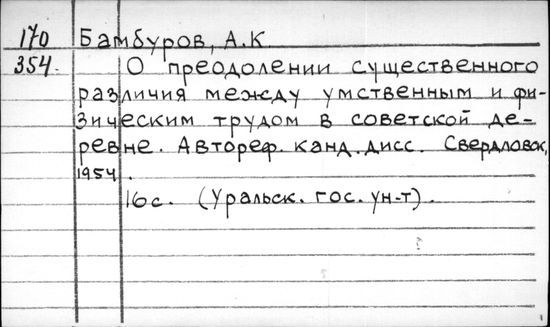 170 Бамбуров, А.К.
354. О преодолении существенного
различия между умственным и фи-
зическим трудом в советской де-
ревне. Автореф. канд. дисс. Свердловск,
1954.
16с. (Уральск. гос. ун-т).